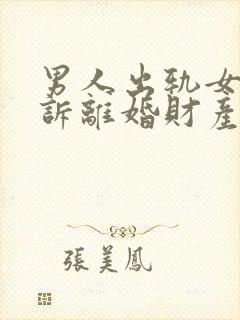 男人出轨女
訴離婚財產
張美鳳